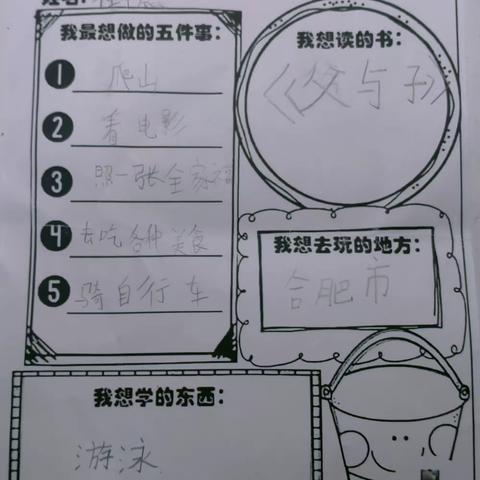 我最想做的五件事：
1 爬山
2 看电影
3 照一张全家福
4 去吃各种美食
5 骑自行车
我想读的书：
《父与子》
我想去玩的地方：
合肥市
我想学的东西：
游泳